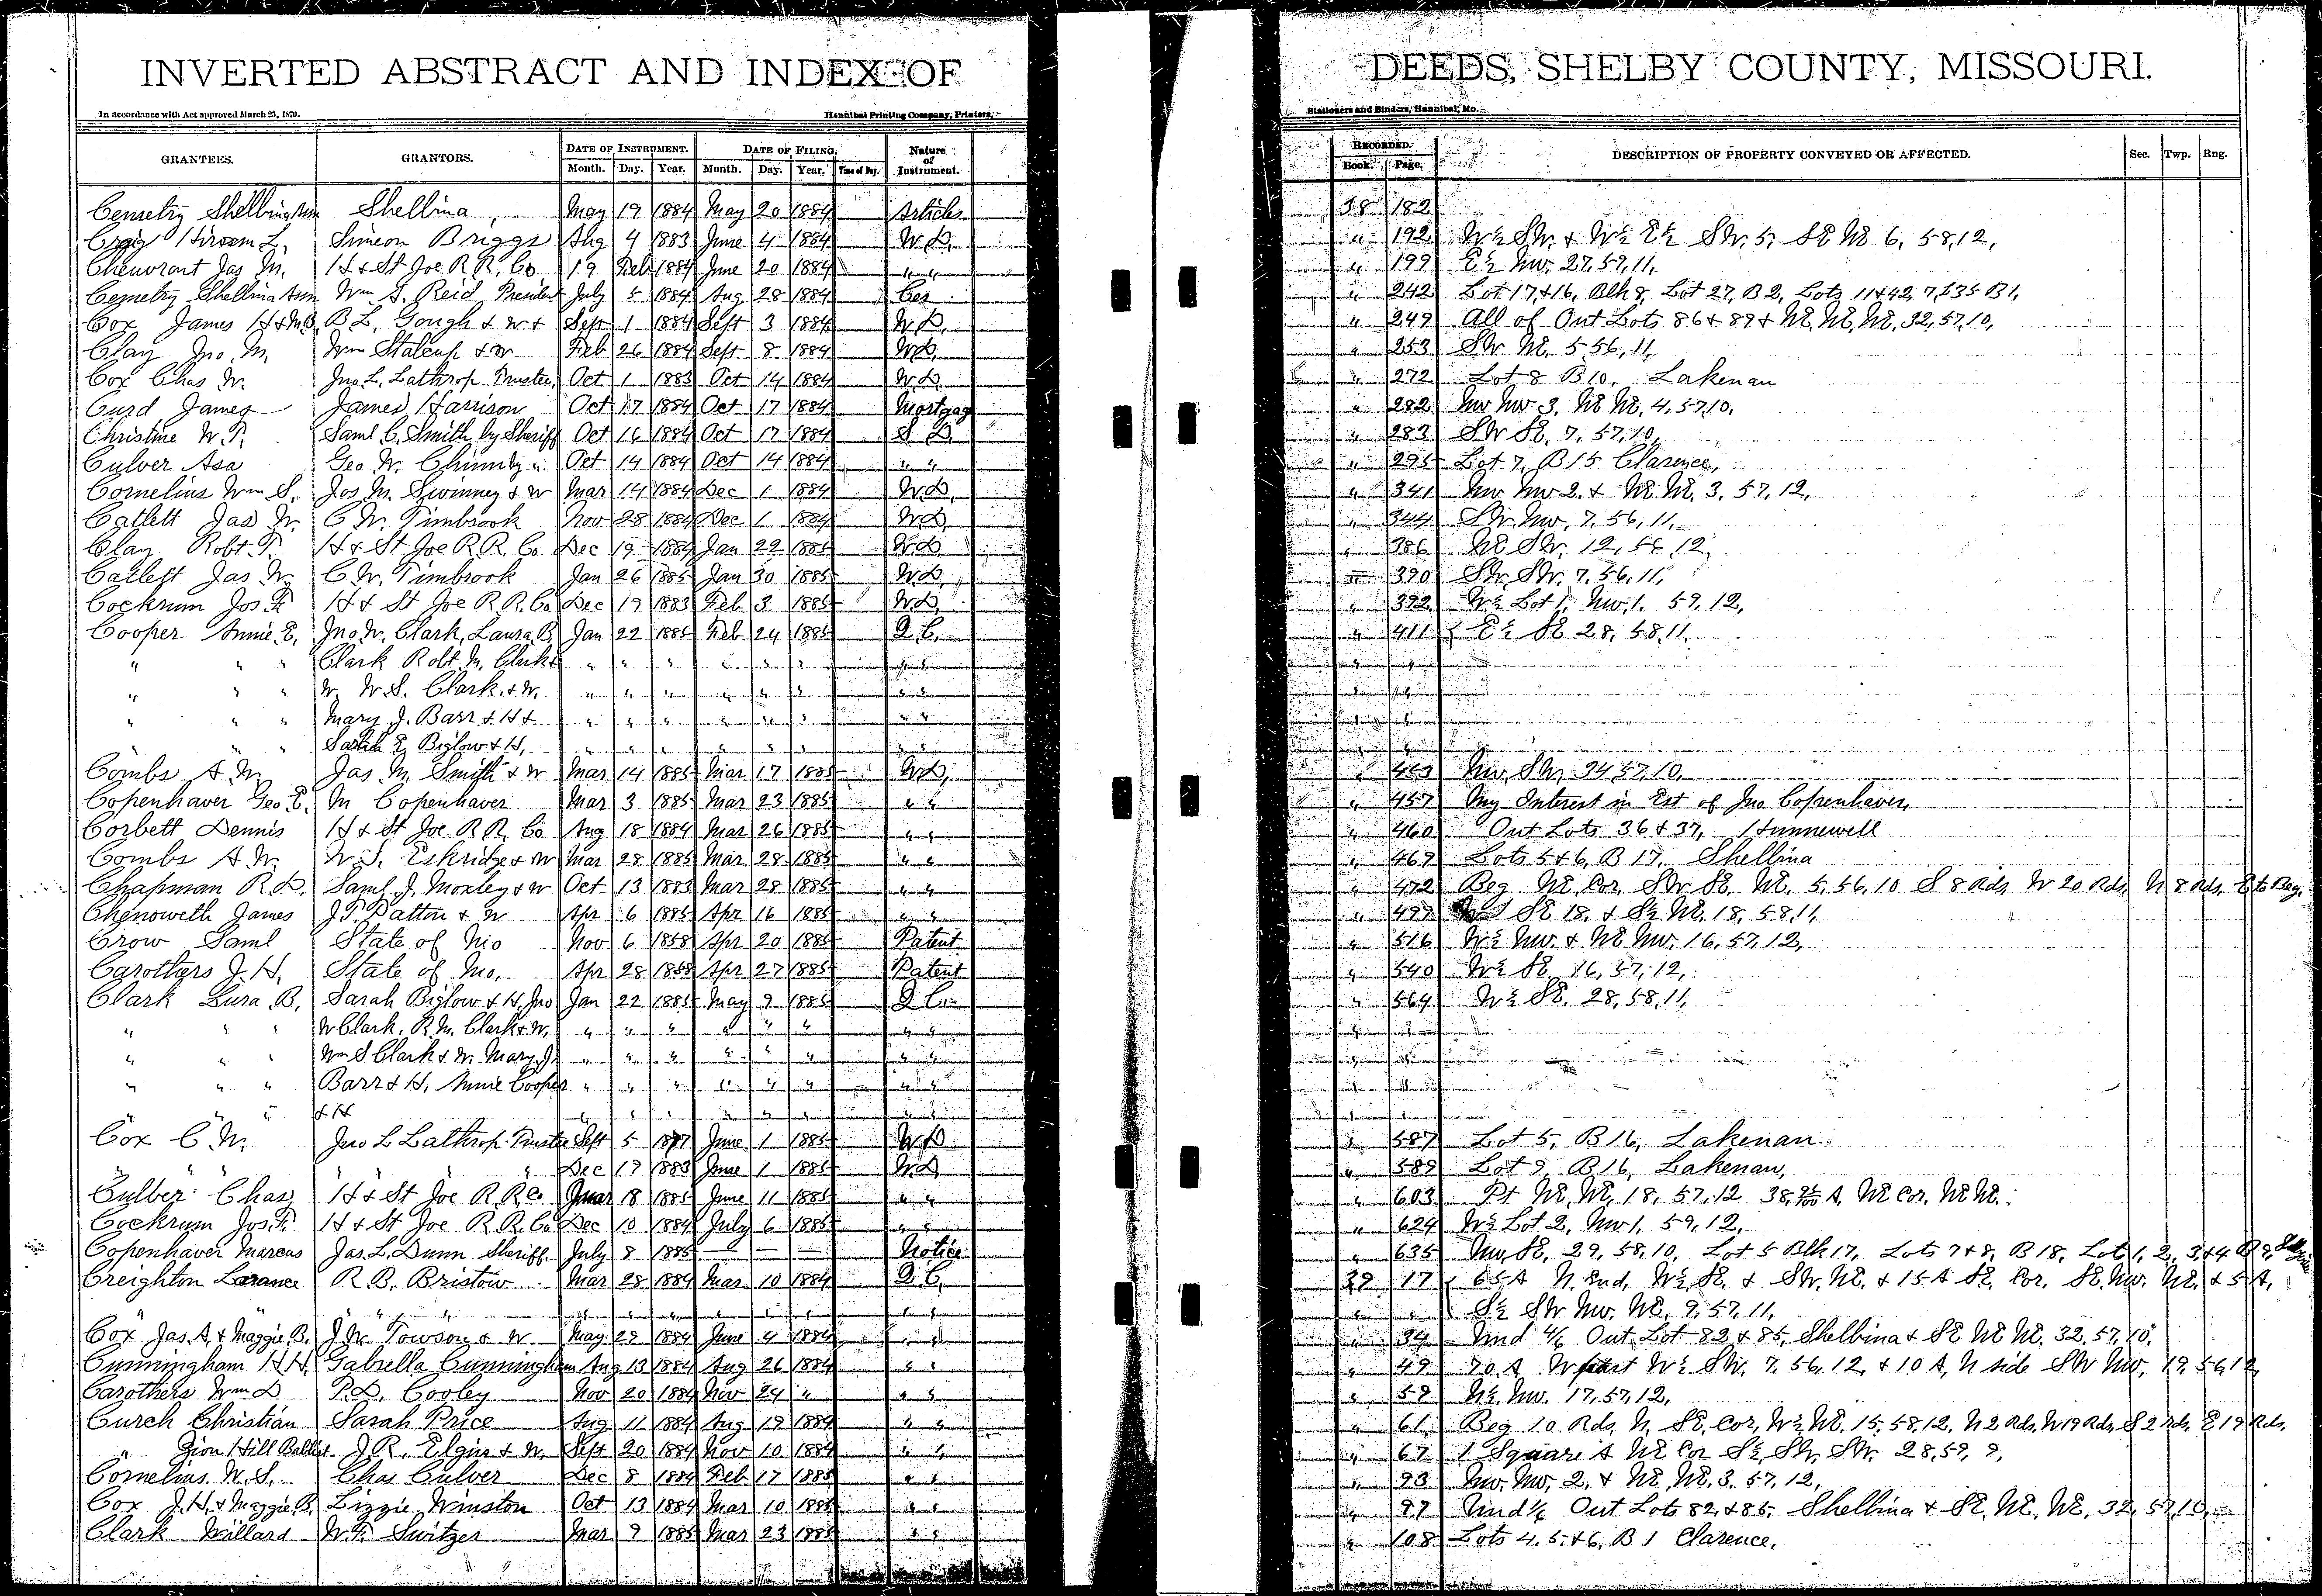 INVERTED ABSTRACT AND INDEX OF DEEDS, SHELBY COUNTY, MISSOURI.
In accordance with Act approved March 25, 1870. Hannibal Printing Company, Printers, Stationers and Binders, Hannibal, Mo.
GRANTEES. GRANTORS. DATE OF INSTRUMENT. DATE OF FILING. Nature of Instrument. RECORDED. DESCRIPTION OF PROPERTY CONVEYED OR AFFECTED. Sec. Twp. Rng.
Month. Day. Year. Month. Day. Year. Time of Day. Book. Page.
Cemetry Shellbina Assn Shelbina May 19 1884 May 20 1884 Articles 38 182
Craig Hiram L. Simeon Briggs Aug 4 1883 June 4 1884 W.D. " 192 W½ SW. & W½ E½ SW. 5, SE NE 6, 58, 12,
Chenvront Jas M. H & St Joe R.R. Co 19 Feb 1884 June 20 1884 " " " 199 E½ NW. 27, 59, 11,
Cemetry Shelbina Assn Wm S. Reid President July 5 1884 Aug 28 1884 Cer " 242 Lot 17 & 16, Blk 8, Lot 27, B 2, Lots 11 & 42, 7, & 35 B 1,
Cox James H & M.B. B.L. Gough & W & Sept 1 1884 Sept 3 1884 W.D. " 249 All of Out Lots 86 & 89 & NE, NE, NE, 32, 57, 10,
Clay Jno. M. Wm Stalcup & W Feb 26 1884 Sept 8 1884 W.D. " 253 SW NE. 5, 56, 11,
Cox Chas W. Jno. L. Lathrop Trustee Oct 1 1883 Oct 14 1884 W.D. " 272 Lot 8 B 10, Lakenan
Curd James James Harrison Oct 17 1884 Oct 17 1884 Mortgag " 282 NW NW 3, NE NE, 4, 57, 10,
Christine W.T. Saml C. Smith by Sheriff Oct 16 1884 Oct 17 1884 S D. " 283 SW SE, 7, 57, 10,
Culver Asa Geo W. Chinn by " Oct 14 1884 Oct 14 1884 " " " 295 Lot 7, B 15 Clarence,
Cornelius Wm S. Jos. M. Swinney & W Mar 14 1884 Dec 1 1884 W.D. " 341 NW NW 2, & NE NE, 3, 57, 12,
Catlett Jas W. C.W. Timbrook Nov 28 1884 Dec 1 1884 W.D. " 344 SW. NW, 7, 56, 11,
Clay Robt. T. H & St Joe R.R. Co Dec 19 1884 Jan 22 1885 W.D " 386 NE SW. 12, 56, 12,
Catlett Jas W. C.W. Timbrook Jan 26 1885 Jan 30 1885 W.D. " 390 SW. SW. 7, 56, 11,
Cockrum Jos. F. H & St Joe R.R. Co Dec 19 1883 Feb 3 1885 W.D. " 392 W½ Lot 1, NW. 1, 59, 12,
Cooper Annie E. Jno. W. Clark, Laura B. Jan 22 1885 Feb 24 1885 Q.C. " 411 E½ SE 28, 58, 11.
" " " Clark Robt. M. Clark & " " " " " " " " " "
" " " W. W.S. Clark & W. " " " " " " " " " "
" " " Mary J. Barr & H & " " " " " " " " " "
" " " Sarah E. Biglow & H, " " " " " " " " " "
Combs A.W. Jas. M. Smith & W Mar 14 1885 Mar 17 1885 W.D. " 453 NW, SW, 34, 57, 10,
Copenhaver Geo. E. M Copenhaver Mar 3 1885 Mar 23 1885 " " " 457 My Interest in Est of Jno Copenhaver,
Corbett Dennis H & St Joe R.R. Co Aug 18 1884 Mar 26 1885 " " " 460 Out Lots 36 & 37, Hunnewell
Combs A.W. W.S. Eskridge & W Mar 28 1885 Mar 28 1885 " " " 469 Lots 5 & 6, B 17, Shelbina
Chapman R.D. Saml. J. Moxley & W Oct 13 1883 Mar 28 1885 " " " 472 Beg NE Cor, SW SE, NE, 5, 56, 10 S 8 Rds, W 20 Rds, N 8 Rds, E to Beg.
Chenoweth James J.T. Patton & W Apr 6 1885 Apr 16 1885 " " " 499 SE 18, & S½ NE, 18, 58, 11,
Crow Saml State of Mo Nov 6 1858 Apr 20 1885 Patent " 516 W½ NW. & NE NW. 16, 57, 12,
Carothers J.H. State of Mo. Apr 28 1858 Apr 27 1885 Patent " 540 W½ SE, 16, 57, 12,
Clark Lura B. Sarah Biglow & H, Jno Jan 22 1885 May 9 1885 Q.C. " 564 W½ SE. 28, 58, 11,
" " " W Clark, R.M. Clark & W, " " " " " " " " " "
" " " Wm S Clark & W. Mary J. " " " " " " " " " "
" " " Barr & H, Annie Cooper " " " " " " " " " "
" " " & H " " " " " " " " " "
Cox C.W. Jno L Lathrop Trustee Sept 5 1877 June 1 1885 W.D " 587 Lot 5, B 16, Lakenan
" " " " " " " Dec 19 1883 June 1 1885 W.D. " 589 Lot 9, B 16, Lakenan,
Culber Chas, H & St Joe R.R. Co Mar 18 1885 June 11 1885 " " " 603 Pt NE, NE, 18, 57, 12 A, NE Cor, NE NE.
Cockrum Jos. F. H & St Joe R.R. Co Dec 10 1884 July 6 1885 " " " 624 W½ Lot 2, NW 1, 59, 12,
Copenhaver Marcus Jas. L. Dunn Sheriff July 8 1885 — — — Notice " 635 NW, SE, 29, 58, 10, Lot 5 Blk 17, Lots 7 & 8, B 18, Lot 1, 2, 3 & 4 B 9,
Creighton Larance R.B. Bristow Mar 28 1884 Mar 10 1884 Q.C. 39 17 65 A N. End, W½ SE, & SW. NE, & 15 A SE, Cor, SE, NW, NE, & 5 A,
" " " " " " " " " " " " " " " S½ SW NW, NE, 9, 57, 11,
Cox Jas. A. & Maggie B. J.W. Towson & W. May 29 1884 June 4 1884 " " " 34 Und 4/6 Out Lot 82 & 85, Shelbina & SE NE NE, 32, 57, 10,
Cunningham H.H. Gabrella Cunningham Aug 13 1884 Aug 26 1884 " " " 49 70 A. W part W½ SW, 7, 56, 12, & 10 A, N side SW NW, 19, 56, 12
Carothers Wm D P.D. Cooley Nov 20 1884 Nov 24 " " " " 59 N½ NW. 17, 57, 12,
Curch Christian Sarah Price Aug 11 1884 Aug 19 1884 " " " 61 Beg 10 Rds, N, SE, Cor, W½ NE, 15, 58, 12, N 2 Rds, W 19 Rds, S 2 Rds, E 19 Rds,
" Zion Hill Babtist J.R. Elgin & W. Sept 20 1884 Nov 10 1884 " " " 67 1 Square A NE Cor S½ SW, SW. 28, 59, 9,
Cornelius W.S. Chas Culver Dec 8 1884 Feb 17 1885 " " " 93 NW, NW, 2, & NE, NE, 3, 57, 12,
Cox J.H. & Maggie B. Lizzie Winston Oct 13 1884 Mar 10 1885 " " " 97 Und 1/6 Out Lots 82 & 85, Shelbina & SE, NE, NE, 32, 57, 10,
Clark Willard W.F. Switzer Mar 9 1885 Mar 23 1885 " " " 108 Lots 4, 5, & 6, B 1 Clarence.